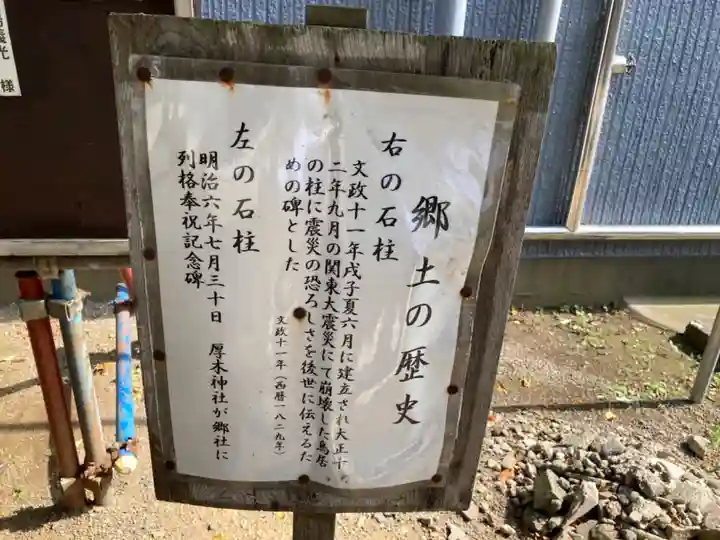 郷土の歴史
右の石柱
文政十一年戌子夏六月に建立され大正十
二年九月の関東大震災にて崩壊した鳥居
の柱に震災の恐ろしさを後世に伝えるた
めの碑とした
文政十一年(西暦一八二九年)
左の石柱
明治六年七月三十日 厚木神社が郷社に
列格奉祝記念碑
義光 様